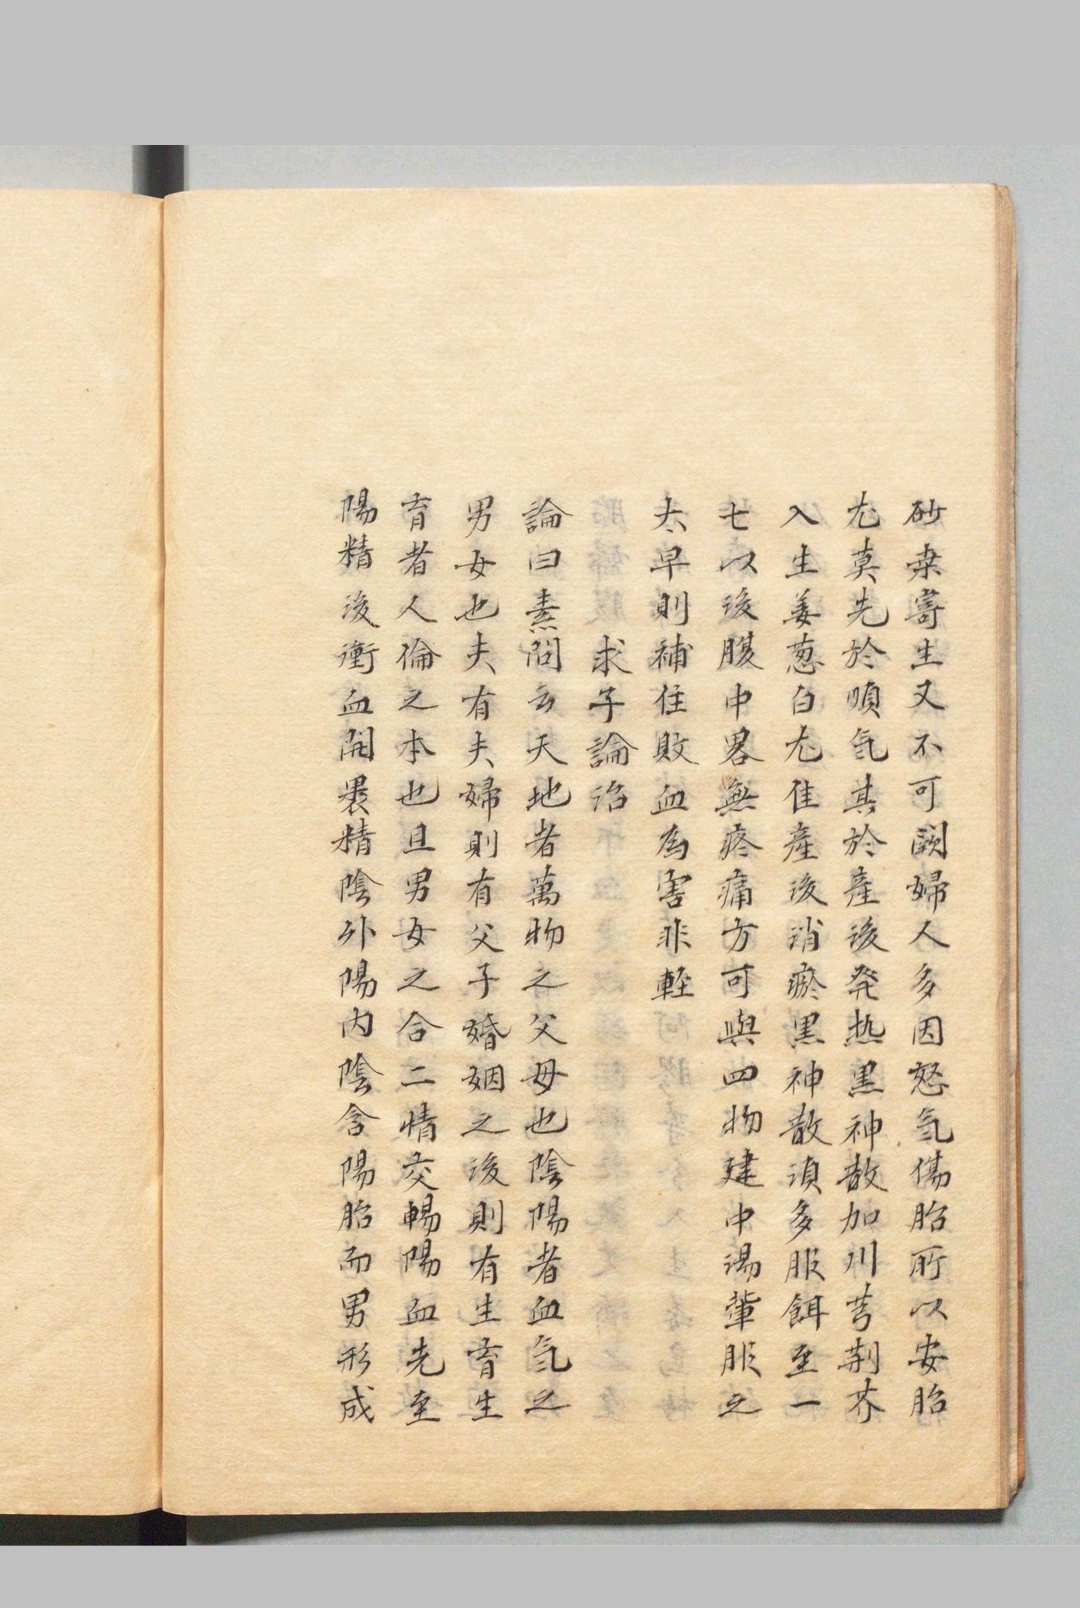 砂桒寄生又不可闕婦人多因怒氣傷胎所以安胎
尤莫先於順気其於產後発热黒神散加川芎荆芥
入生姜葱白尤佳產後消瘀黒神散湏多服餌至一
七以後腹中畧無疼痛方可與四物建中湯輩服之
太早則補住敗血為害非輕
求子論治
論曰素問云天地者萬物之父母也陰陽者血氣之
男女也夫有夫婦則有父子婚姻之後則有生育生
育者人倫之本也且男女之合二情交暢陽血先至
陽精後衝血開裹精陰外陽内陰含陽胎而男形成